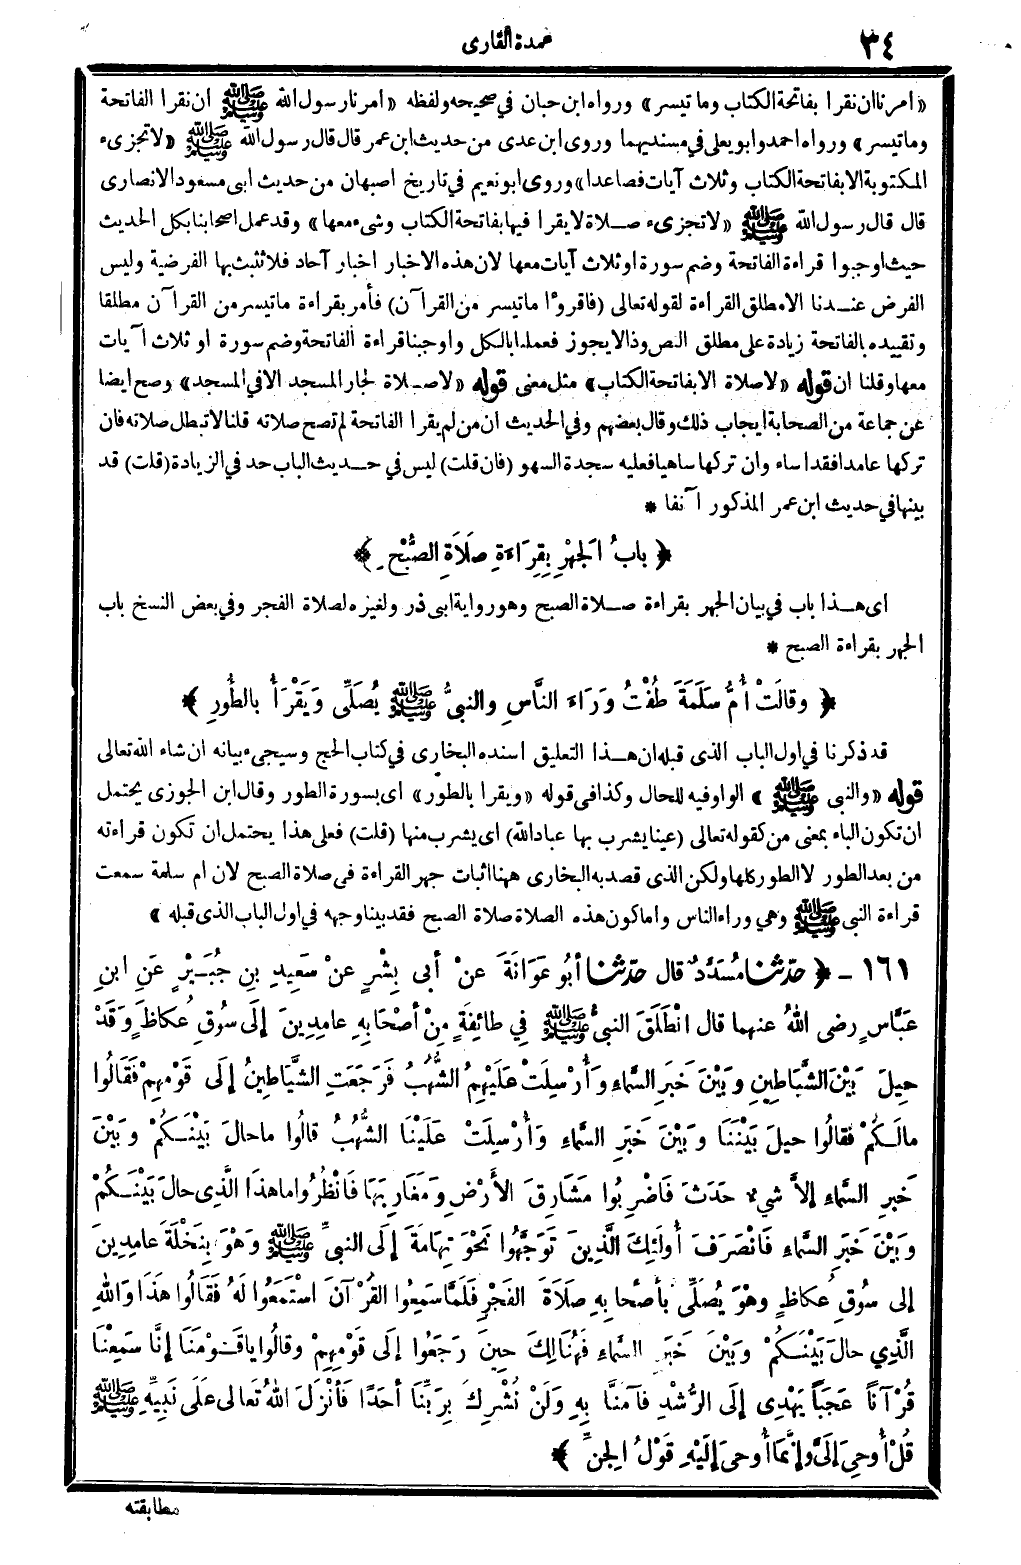 ٣٤
عمدة القارى
«امرنا ان نقرا بفاتحة الكتاب وما تيسر» ورواه ابن حبان في صحيحه ولفظه «امرنا رسول الله ﷺ ان نقرا الفاتحة
وما تيسر» ورواه احمد وابو يعلى في مسنديهما وروى ابن عدى من حديث ابن عمر قال قال رسول الله ﷺ «لا تجزىء
المكتوبة الا بفاتحة الكتاب وثلاث آيات فصاعدا» وروى ابو نعيم في تاريخ اصبهان من حديث ابى مسعود الانصارى
قال قال رسول الله ﷺ «لا تجزىء صلاة لا يقرا فيها بفاتحة الكتاب وشىء معها» وقد عمل اصحابنا بكل الحديث
حيث اوجبوا قراءة الفاتحة وضم سورة او ثلاث آيات معها لان هذه الاخبار اخبار آحاد فلا تثبت بها الفرضية وليس
الفرض عندنا الا مطلق القراءة لقوله تعالى (فاقرؤا ما تيسر من القرآن) فأمر بقراءة ما تيسر من القرآن مطلقا
وتقييده بالفاتحة زيادة على مطلق النص وذا لا يجوز فعملنا بالكل واوجبنا قراءة الفاتحة وضم سورة او ثلاث آيات
معها وقلنا ان قوله «لا صلاة الا بفاتحة الكتاب» مثل معنى قوله «لا صلاة لجار المسجد الا في المسجد» وصح ايضا
عن جماعة من الصحابة ايجاب ذلك وقال بعضهم وفي الحديث ان من لم يقرا الفاتحة لم تصح صلاته قلنا لا تبطل صلاته فان
تركها عامدا فقد اساء وان تركها ساهيا فعليه سجدة السهو (فان قلت) ليس في حديث الباب حد في الزيادة (قلت) قد
بينها في حديث ابن عمر المذكور آنفا *
﴿ بابُ الجَهْرِ بِقِرَاءَةِ صَلَاةِ الصُّبْحِ ﴾
اى هذا باب في بيان الجهر بقراءة صلاة الصبح وهو رواية ابى ذر ولغيره لصلاة الفجر وفي بعض النسخ باب
الجهر بقراءة الصبح *
﴿ وقالَتْ أُمُّ سَلَمَةَ طُفْتُ وَرَاءَ النَّاسِ والنبيُّ ﷺ يُصَلِّى وَيَقْرَأُ بالطُّورِ ﴾
قد ذكرنا في اول الباب الذى قبله ان هذا التعليق اسنده البخارى في كتاب الحج وسيجىء بيانه ان شاء الله تعالى
قوله «والنبى ﷺ» الواو فيه للحال وكذا في قوله «ويقرا بالطور» اى بسورة الطور وقال ابن الجوزى يحتمل
ان تكون الباء بمعنى من كقوله تعالى (عينا يشرب بها عباد الله) اى يشرب منها (قلت) فعلى هذا يحتمل ان تكون قراءته
من بعد الطور لا الطور كلها ولكن الذى قصد به البخارى ههنا اثبات جهر القراءة فى صلاة الصبح لان ام سلمة سمعت
قراءة النبى ﷺ وهي وراء الناس واما كون هذه الصلاة صلاة الصبح فقد بينا وجهه في اول الباب الذى قبله »
١٦١ - ﴿ حدثنا مُسَدَّدٌ قال حدثنا أبُو عَوَانَةَ عنْ أبى بِشْرٍ عنْ سَعِيدِ بنِ جُبَيْرٍ عَنِ ابنِ
عَبَّاسٍ رضى اللهُ عنهما قال انْطَلَقَ النبيُّ ﷺ فِي طائِفَةٍ مِنْ أصْحَابِهِ عامِدِينَ إلَى سُوقِ عُكاظَ وَقَدْ
حِيلَ بَيْنَ الشَّيَاطِينِ وبَيْنَ خَبَرِ السَّماءِ وَأُرْسِلَتْ عَلَيْهِمُ الشُّهُبُ فَرَجَعَتِ الشَّيَاطِينُ إلَى قَوْمِهِمْ فَقَالُوا
مالَكُمْ فقالُوا حيلَ بَيْنَنَا وبَيْنَ خَبَرِ السَّماءِ وَأُرْسِلَتْ عَلَيْنَا الشُّهُبُ قالُوا ما حالَ بَيْنَكُمْ وبَيْنَ
خَبَرِ السَّماءِ إلاَّ شىءٌ حَدَثَ فَاضْرِبُوا مَشَارِقَ الأَرْضِ ومَغَارِبَهَا فَانْظُرُوا ما هذَا الَّذِى حالَ بَيْنَكُمْ
وبَيْنَ خَبَرِ السَّماءِ فَانْصَرَفَ أُولَئِكَ الَّذِينَ تَوَجَّهُوا نَحْوَ تِهَامَةَ إلَى النبيِّ ﷺ وَهْوَ بِنَخْلَةَ عامِدِينَ
إلى سُوقِ عُكاظٍ وهْوَ يُصَلِّى بأصْحابِهِ صلَاَةَ الفَجْرِ فَلَمَّا سَمِعُوا القُرْآنَ اسْتَمَعُوا لَهُ فَقَالُوا هَذَا واللهِ
الَّذِي حالَ بَيْنَكُمْ وبَيْنَ خَبَرِ السَّماءِ فَهُنَالِكَ حِينَ رَجَعُوا إلَى قَوْمِهِمْ وقالُوا يا قَوْمَنَا إنَّا سَمِعْنَا
قُرْآناً عَجَباً يَهْدِى إلَى الرُّشْدِ فآمَنَّا بِهِ وَلَنْ نُشْرِكَ بِرَبِّنَا أحَدًا فَأَنْزَلَ اللهُ تَعَالى عَلَى نَبِيِّهِ ﷺ
قُلْ أُوحِىَ إلَىَّ وإنَّمَا أُوحِىَ إلَيْهِ قَوْلُ الجِنِّ ﴾
مطابقته